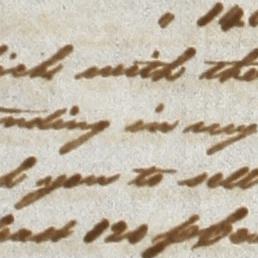 ich with the
nding in my
d you to sell
least 120 p